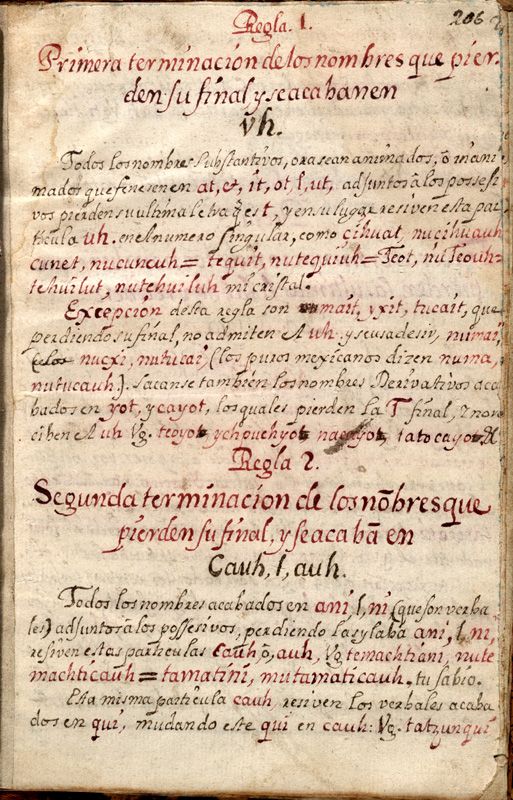 206
Regla. 1.
Primera terminacion de los nombres que pier-
den su final y se acaban en
vh.
Todos los nombres Substantivos, ora sean animados, ô inani
mados que finesen en at, et, it, ot, l, ut, adjuntos â los possesi
vos pierden su ultima letra q̃ es t, y en su lugar resiven esta par
ticula uh. en el numero singular, como cihuat, nucihuauh
cunet, nucuncuh = tequit, nutequiuh = Teot, nuTeouh =
tehuilut, nutehuiluh mi cristal.
Excepción desta regla son mait, yxit, tucait, que
perdiendo su final, no admiten el uh. y se usa desir, numai,
nucxi, nutucai, (los puros mexicanos dizen numa,
nutucauh). Sacanse tambien los nombres Derivativos aca
bados en yot, y cayot, los quales pierden la T final, y no re
ciben el uh Vg. teoyot, ychpuchyot, nacayot, tatocayot. &
Regla 2.
Segunda terminacion de los nõbres que
pierden su final, y se acabã en
Cauh, l, auh.
Todos los nombres acabados en ani, l, ni (que son verba
les) adjuntos â los possesivos, perdiendo la sylaba ani, l, ni,
resiven estas particulas cauh, ô, auh, Vg. temachtiani, nute
machticauh = tamatini, mutamaticauh. tu sabio.
Esta misma particula cauh, resiven los verbales acaba
dos en qui, mudando este qui en cauh: Vg. tatzunqui